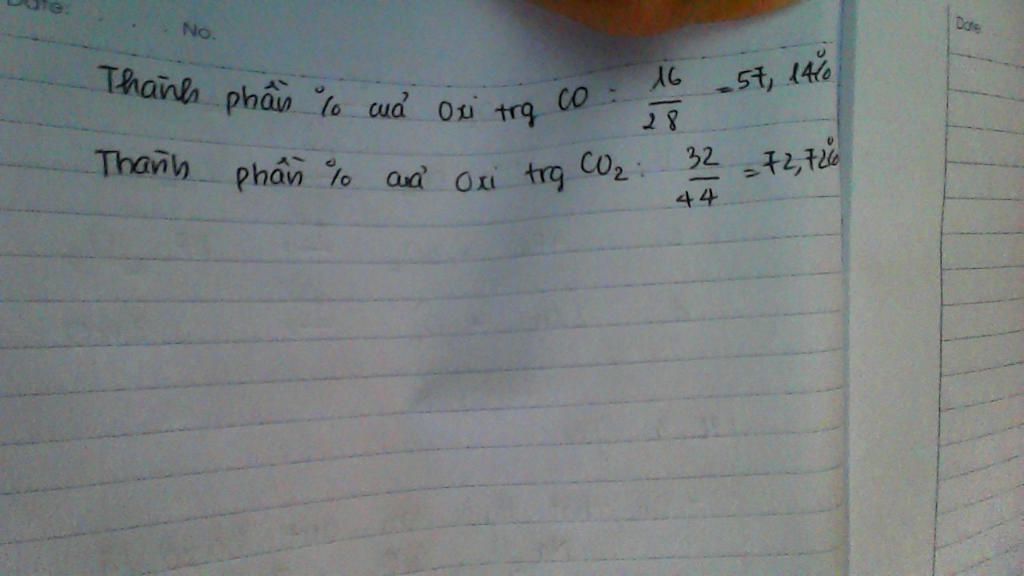 Date:
No.
Date
Thành phần % cuả Oxi trg CO : 16/28 = 57, 14%
Thành phần % cuả Oxi trg CO₂ : 32/44 = 72,72%